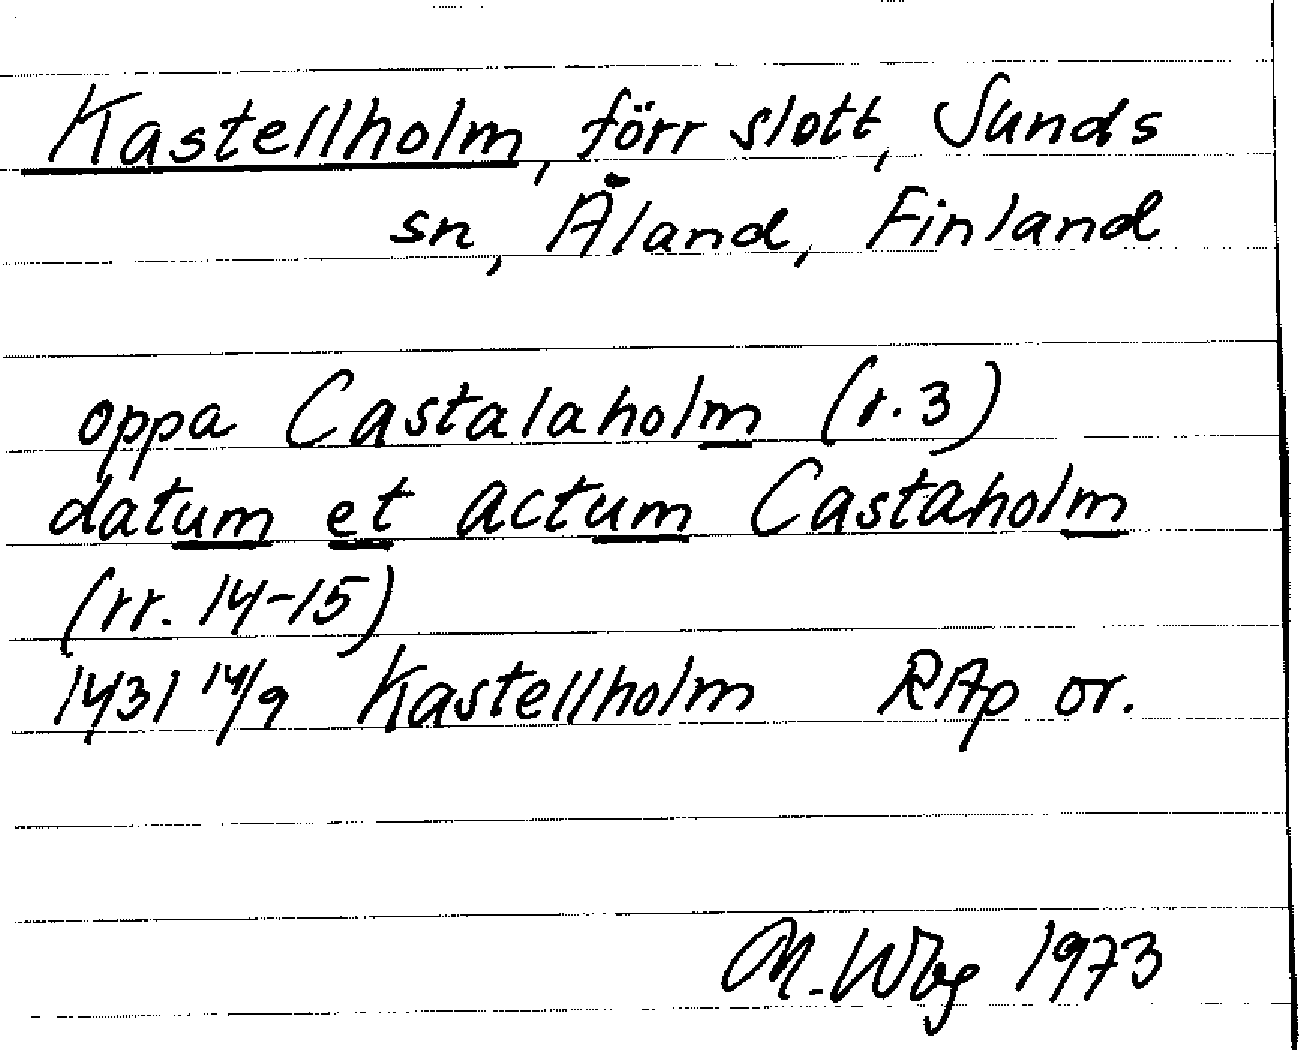 Kastellholm, förr slott, Sunds
sn, Åland, Finland
oppa Castalaholm (r. 3)
datum et actum Castaholm
(rr. 14-15)
1431 14/9 Kastellholm RAp or.
M. Wbg 1973